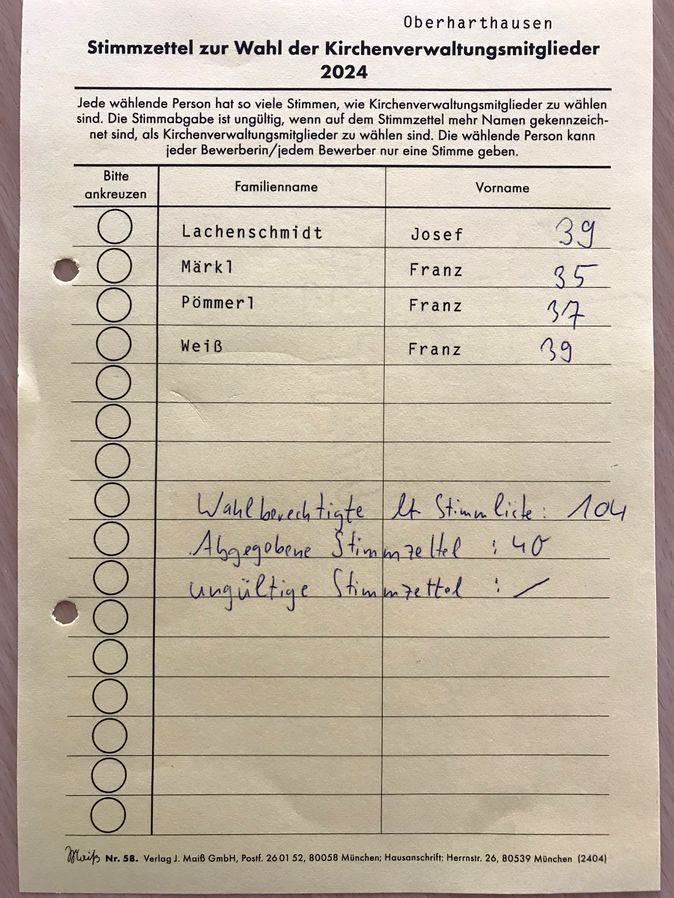 Oberharthausen
Stimmzettel zur Wahl der Kirchenverwaltungsmitglieder
2024
Jede wählende Person hat so viele Stimmen, wie Kirchenverwaltungsmitglieder zu wählen
sind. Die Stimmabgabe ist ungültig, wenn auf dem Stimmzettel mehr Namen gekennzeich-
net sind, als Kirchenverwaltungsmitglieder zu wählen sind. Die wählende Person kann
jeder Bewerberin/jedem Bewerber nur eine Stimme geben.
Bitte ankreuzen Familienname Vorname
Lachenschmidt Josef 39
Märkl Franz 35
Pömmerl Franz 37
Weiß Franz 39
Wahlberechtigte lt Stimmliste: 104
Abgegobene Stimmzettel : 40
ungültige Stimmzettel : /
Maiß Nr. 58. Verlag J. Maiß GmbH, Postf. 26 01 52, 80058 München; Hausanschrift: Herrnstr. 26, 80539 München (2404)